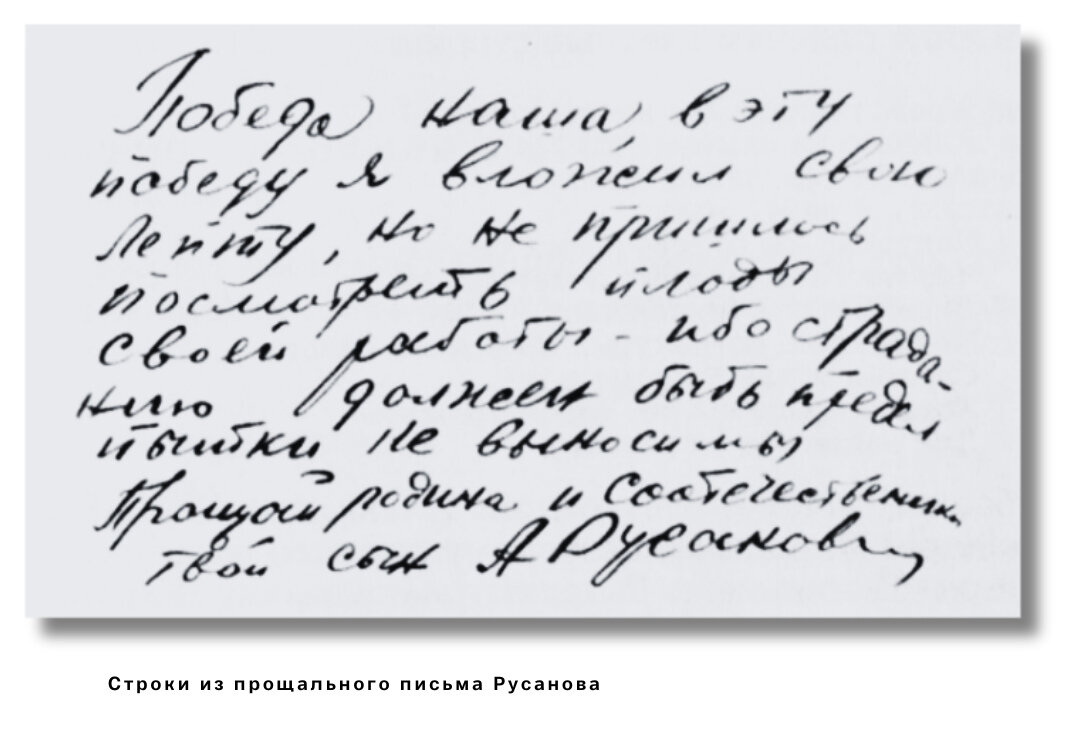 Победа наша, в эту
победу я вложил свою
лепту, но не пришлось
посмотреть плоды
своей работы - ибо страда-
нию должен быть предел
пытки не выносимы
Прощай родина и соотечественники
твой сын А Русанов
Строки из прощального письма Русанова